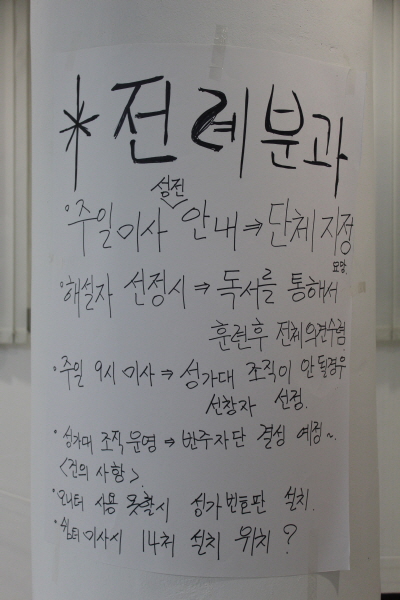 * 전례분과
성전
• 주일미사 안내 ⇒ 단체 지정
• 해설자 선정시 ⇒ 독서를 통해서
훈련후 전체의견수렴
• 주일 9시 미사 ⇒ 성가대 조직이 안될경우
선창자 선정.
• 성가대 조직 운영 ⇒ 반주자단 결성 예정~.
<건의 사항>
• 모니터 사용 못할시 성가번호판 설치.
• 쉼터미사시 14처 설치 위치?